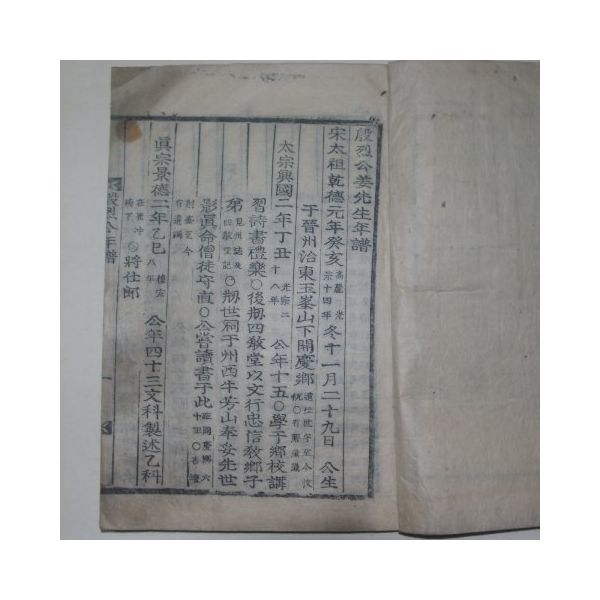 殷烈公姜先生年譜
宋太祖乾德元年癸亥 高麗光宗十四年 冬十一月二十九日 公生
于晉州治東玉峯山下開慶鄉
太宗興國二年丁丑 公年十五○學于鄉校講
習詩書禮樂○後刱四敎堂以文行忠信敎鄉子
第 晉州誌及四敎堂記 ○刱世祠于州西牛芳山奉妥先世
影眞命僧徒守直○公嘗讀書于此
眞宗景德二年乙巳 穆宗八年 公年四十三文科製述乙科
○將仕郎
殷烈公年譜
一